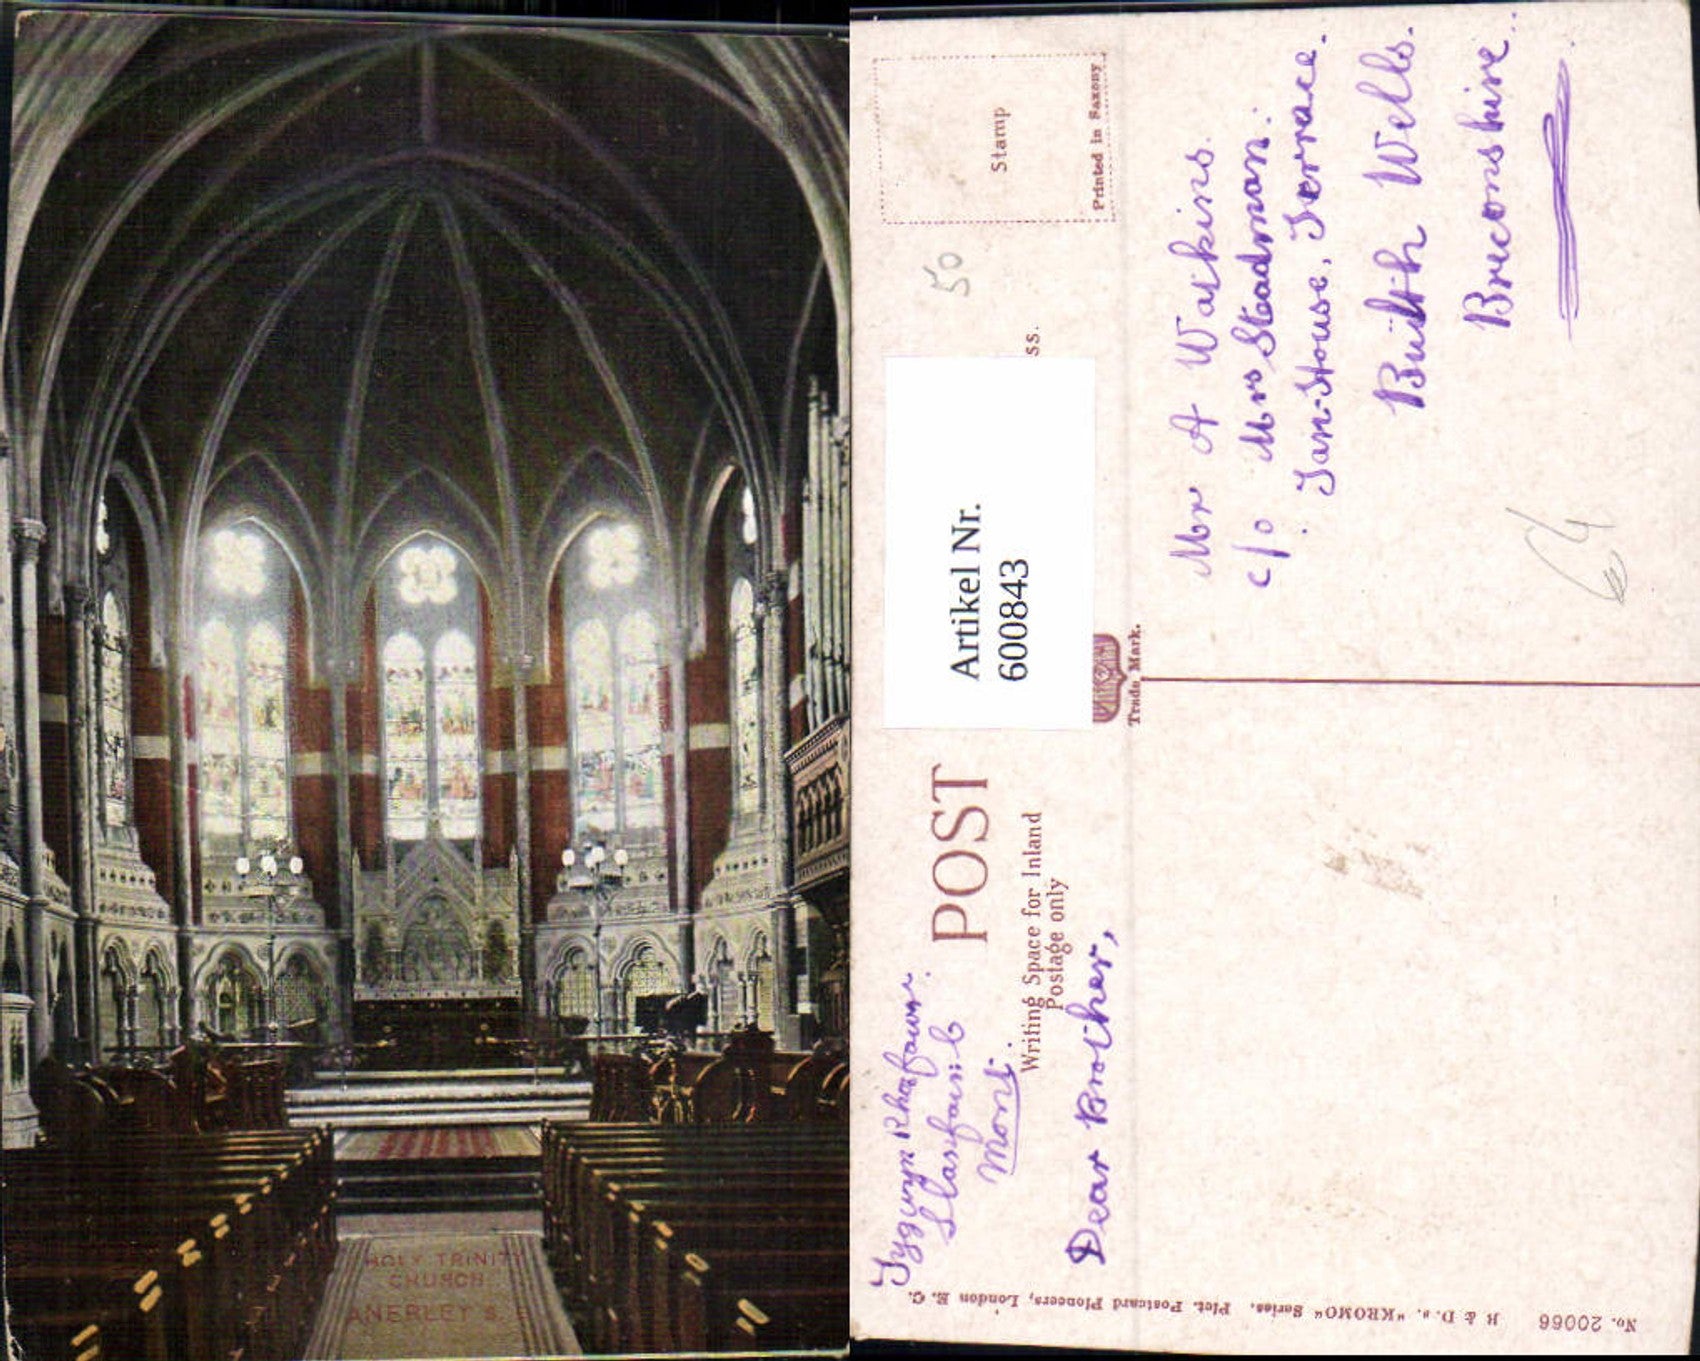 HOLY TRINITY
CHURCH
ANERLEY S. E.
POST
Writing Space for Inland
Postage only
ss.
Stamp
Printed in Saxony
50
Artikel Nr.
600843
Trade Mark.
Llanfair
Mont.
Dear Brother,
Mr A Watkins.
c/o Mrs Steadman:
Tan-House, Terrace.
Builth Wells.
Breconshire.
No. 20066 R & D.'s. "KROMO" Series. Pict. Postcard Pioneers, London E. C.